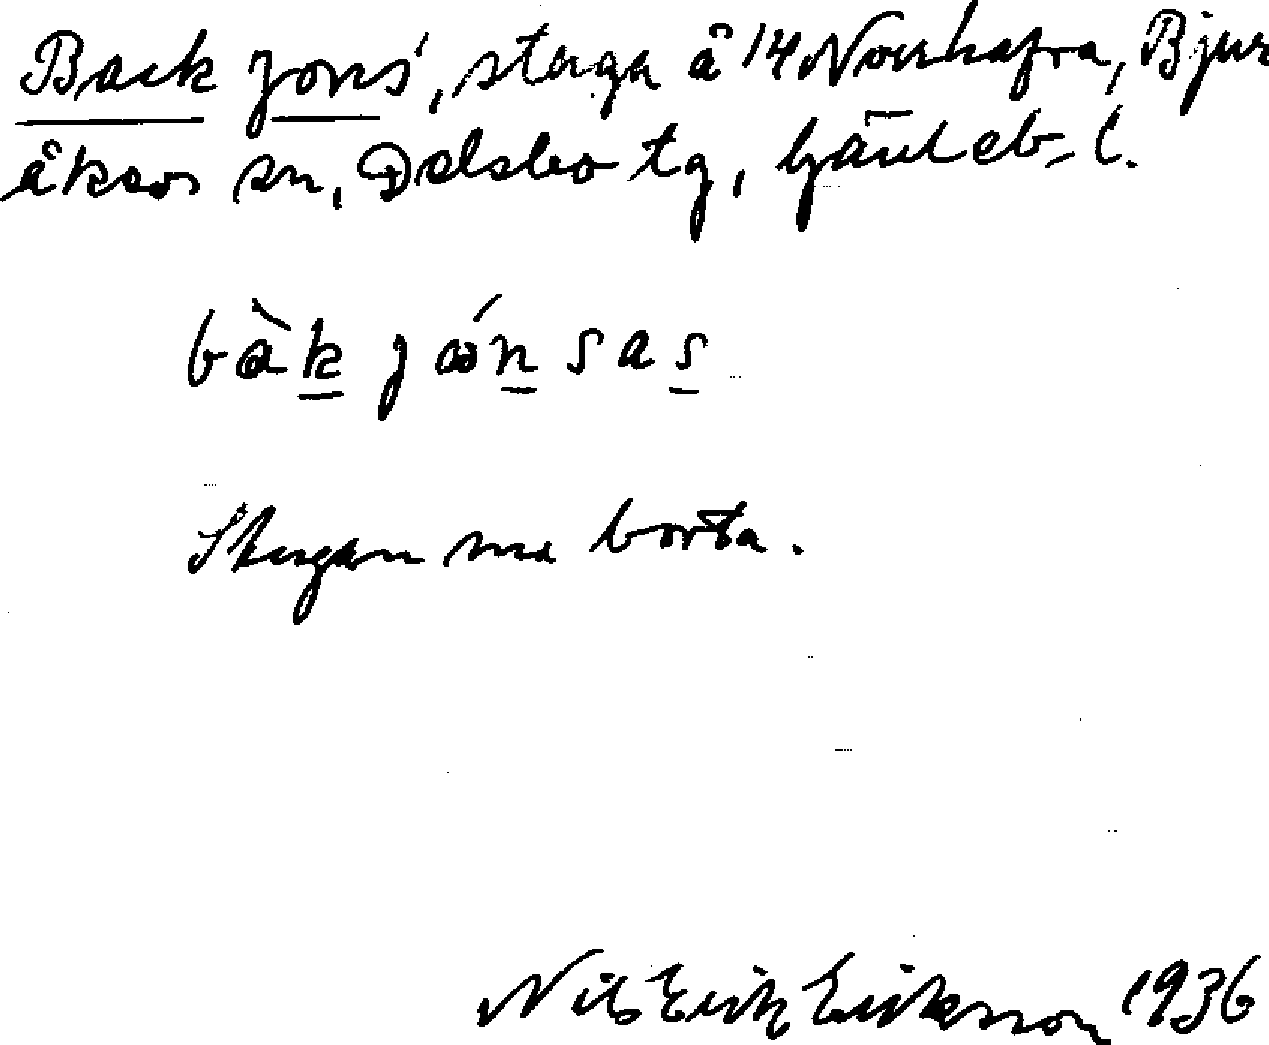 Back Jons', stuga å 14 Norrhafra, Bjur
åkers sn, Delsbo tg, Gävleb. l.
bàk jónsas
Stugan nu borta.
Nils Erik Eriksson 1936